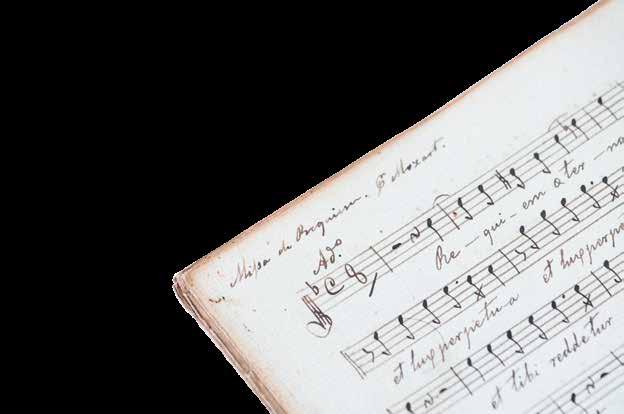 Missa de Requiem. Mozart.
Ado.
Re-qui-em æter-na
et lux perpetu-a et lux perpe
et tibi reddetur